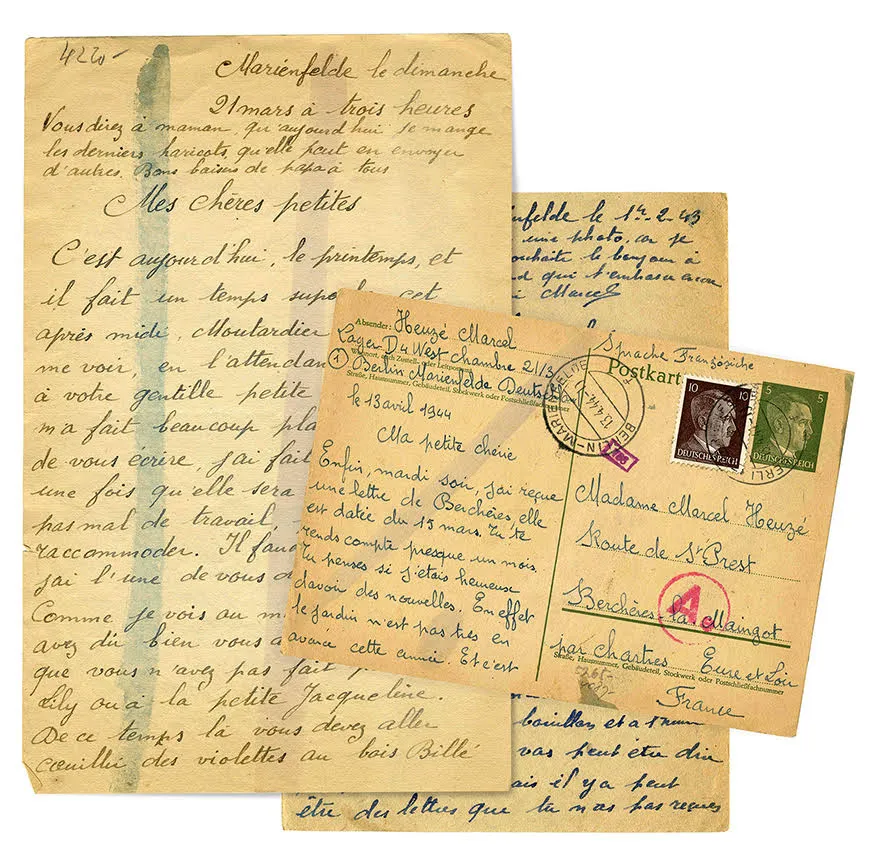 4220-
Marienfelde le dimanche
21 mars à trois heures
Vous direz à maman, qu'aujourd'hui je mange
les derniers haricots, qu'elle peut en envoyer
d'autres. Bons baisers de papa à tous
Mes chères petites
C'est aujourd'hui, le printemps, et
il fait un temps cet
après midi, Moutardier
me voir, en l'attendan
à votre gentille petite
m'a fait beaucoup pla
de vous écrire, j'ai fait
une fois qu'elle sera
pas mal de travail,
raccommoder. Il fau
j'ai l'une de vous
Comme je vois au m
avez dû bien vous a
que vous n'avez pas fait
Lily ou à la petite Jacqueline.
De ce temps là vous devez aller
cœuillir des violettes au bois Billé
nfelde le 1er-2-43
une photo, car je
ouhaite le bonjour à
d qui t'embrasse encore
Marcel
Absender: Heuzé Marcel
Lager D4 West Chambre 21/3
Wohnort, auch Zustell- oder Leitpostamt
1 Berlin Marienfelde Deutschlan
Straße, Hausnummer, Gebäudeteil, Stockwerk oder Postschließfachnummer
le 13 avril 1944
Ma petite chérie
Enfin, mardi soir, j'ai reçue
une lettre de Berchères, elle
est datée du 15 mars. Tu te
rends compte presque un mois.
Tu penses si j'étais heureux
d'avoir des nouvelles. En effet
le jardin n'est pas très en
avance cette année. Et c'est
Sprache Französiche
Postkart
BERLIN-MARIENFELDE
13.4.44
10 10
DEUTSCHES REICH
5 5
DEUTSCHES REICH
Madame Marcel Heuzé
Route de St Prest
Berchères la Maingot
A
par Chartres Eure et Loir
Straße, Hausnummer, Gebäudeteil, Stockwerk oder Postschließfachnummer
France
bouillon et a
vas peut être dire
ais il y a peut
être des lettres que tu n'as pas reçues